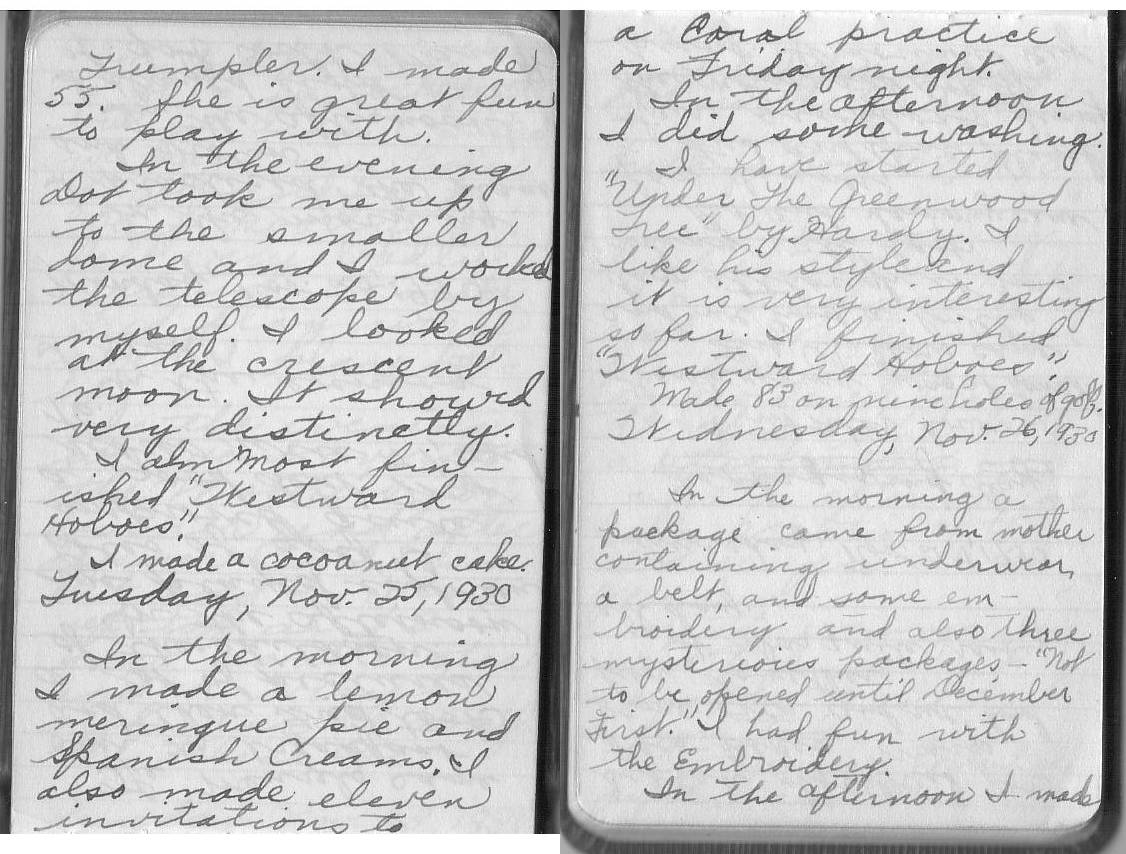 Trumpler. I made
55. She is great fun
to play with.
In the evening
Dot took me up
to the smaller
dome and I worked
the telescope by
myself. I looked
at the crescent
moon. It showed
very distinctly.
I almost fin-
ished "Westward
Hoboes."
I made a cocoanut cake.
Tuesday, Nov. 25, 1930
In the morning
I made a lemon
meringue pie and
Spanish Creams. I
also made eleven
invitations to
a Coral practice
on Friday night.
In the afternoon
I did some washing.
I have started
"Under The Greenwood
Tree" by Hardy. I
like his style and
it is very interesting
so far. I finished
"Westward Hoboes".
Made 83 on nine holes of golf.
Wednesday, Nov. 26, 1930
In the morning a
package came from mother
containing underwear,
a belt, and some em-
broidery and also three
mysterious packages - "Not
to be opened until December
First." I had fun with
the Embroidery.
In the afternoon I made